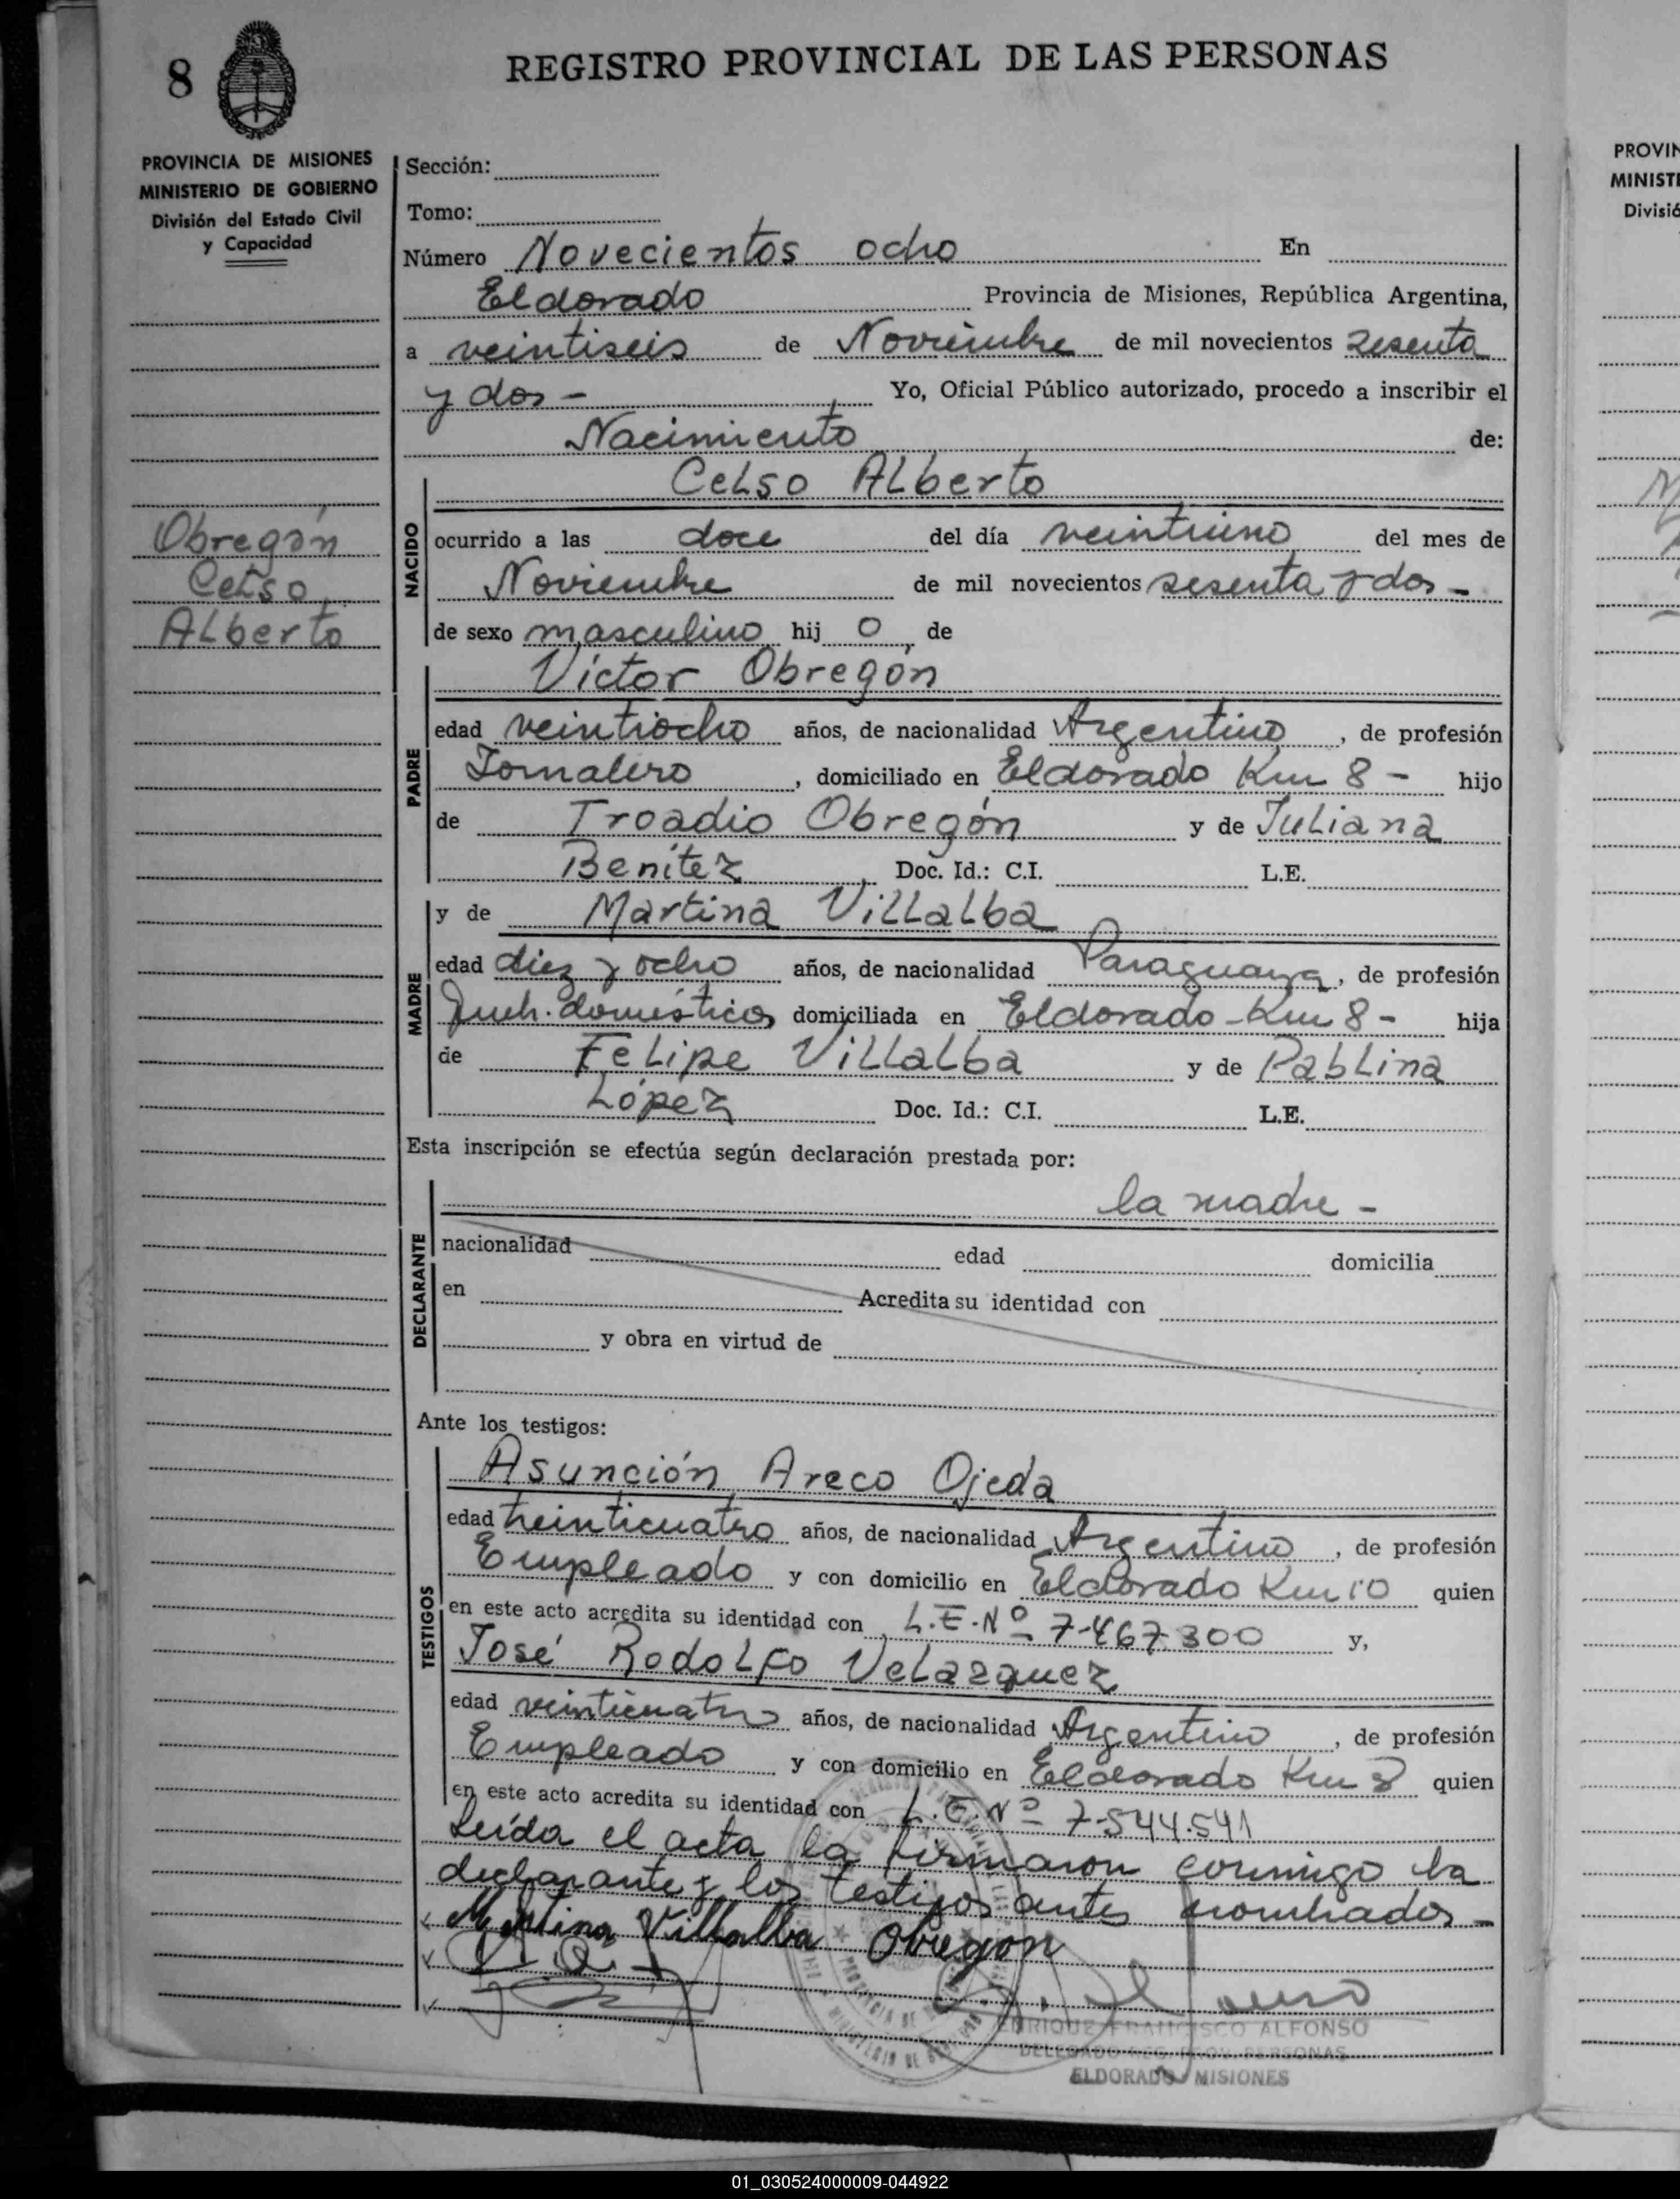 8
REGISTRO PROVINCIAL DE LAS PERSONAS
PROVINCIA DE MISIONES
MINISTERIO DE GOBIERNO
División del Estado Civil
y Capacidad
Obregón
Celso
Alberto
Sección:
Tomo:
Número Novecientos ocho En
Eldorado Provincia de Misiones, República Argentina,
a veintiseis de Noviembre de mil novecientos sesenta
y dos - Yo, Oficial Público autorizado, procedo a inscribir el
Nacimiento de:
Celso Alberto
NACIDO
ocurrido a las doce del día veintiuno del mes de
Noviembre de mil novecientos sesenta y dos -
de sexo masculino hij o de
Víctor Obregón
PADRE
edad veintiocho años, de nacionalidad Argentino, de profesión
Jornalero, domiciliado en Eldorado Km 8 - hijo
de Troadio Obregón y de Juliana
Benítez Doc. Id.: C.I. L.E.
y de Martina Villalba
MADRE
edad diez y ocho años, de nacionalidad Paraguaya, de profesión
Queh. domésticos domiciliada en Eldorado - Km 8 - hija
de Felipe Villalba y de Pablina
López Doc. Id.: C.I. L.E.
Esta inscripción se efectúa según declaración prestada por:
la madre -
DECLARANTE
nacionalidad edad domicilia
en Acredita su identidad con
y obra en virtud de
Ante los testigos:
Asunción Areco Ojeda
TESTIGOS
edad treinticuatro años, de nacionalidad Argentino, de profesión
Empleado y con domicilio en Eldorado Km 10 quien
en este acto acredita su identidad con L.E. Nº 7.467.300 y,
José Rodolfo Velazquez
edad veinticuatro años, de nacionalidad Argentino, de profesión
Empleado y con domicilio en Eldorado Km 8 quien
en este acto acredita su identidad con L.E. Nº 7.544.541
Leída el acta la firmaron conmigo la
declarante y los testigos antes nombrados -
Martina Villalba Obregon
ENRIQUE FRANCISCO ALFONSO
DELEGADO REG. PROV. PERSONAS
ELDORADO MISIONES
PROVIN
MINISTE
Divisió
01_030524000009-044922